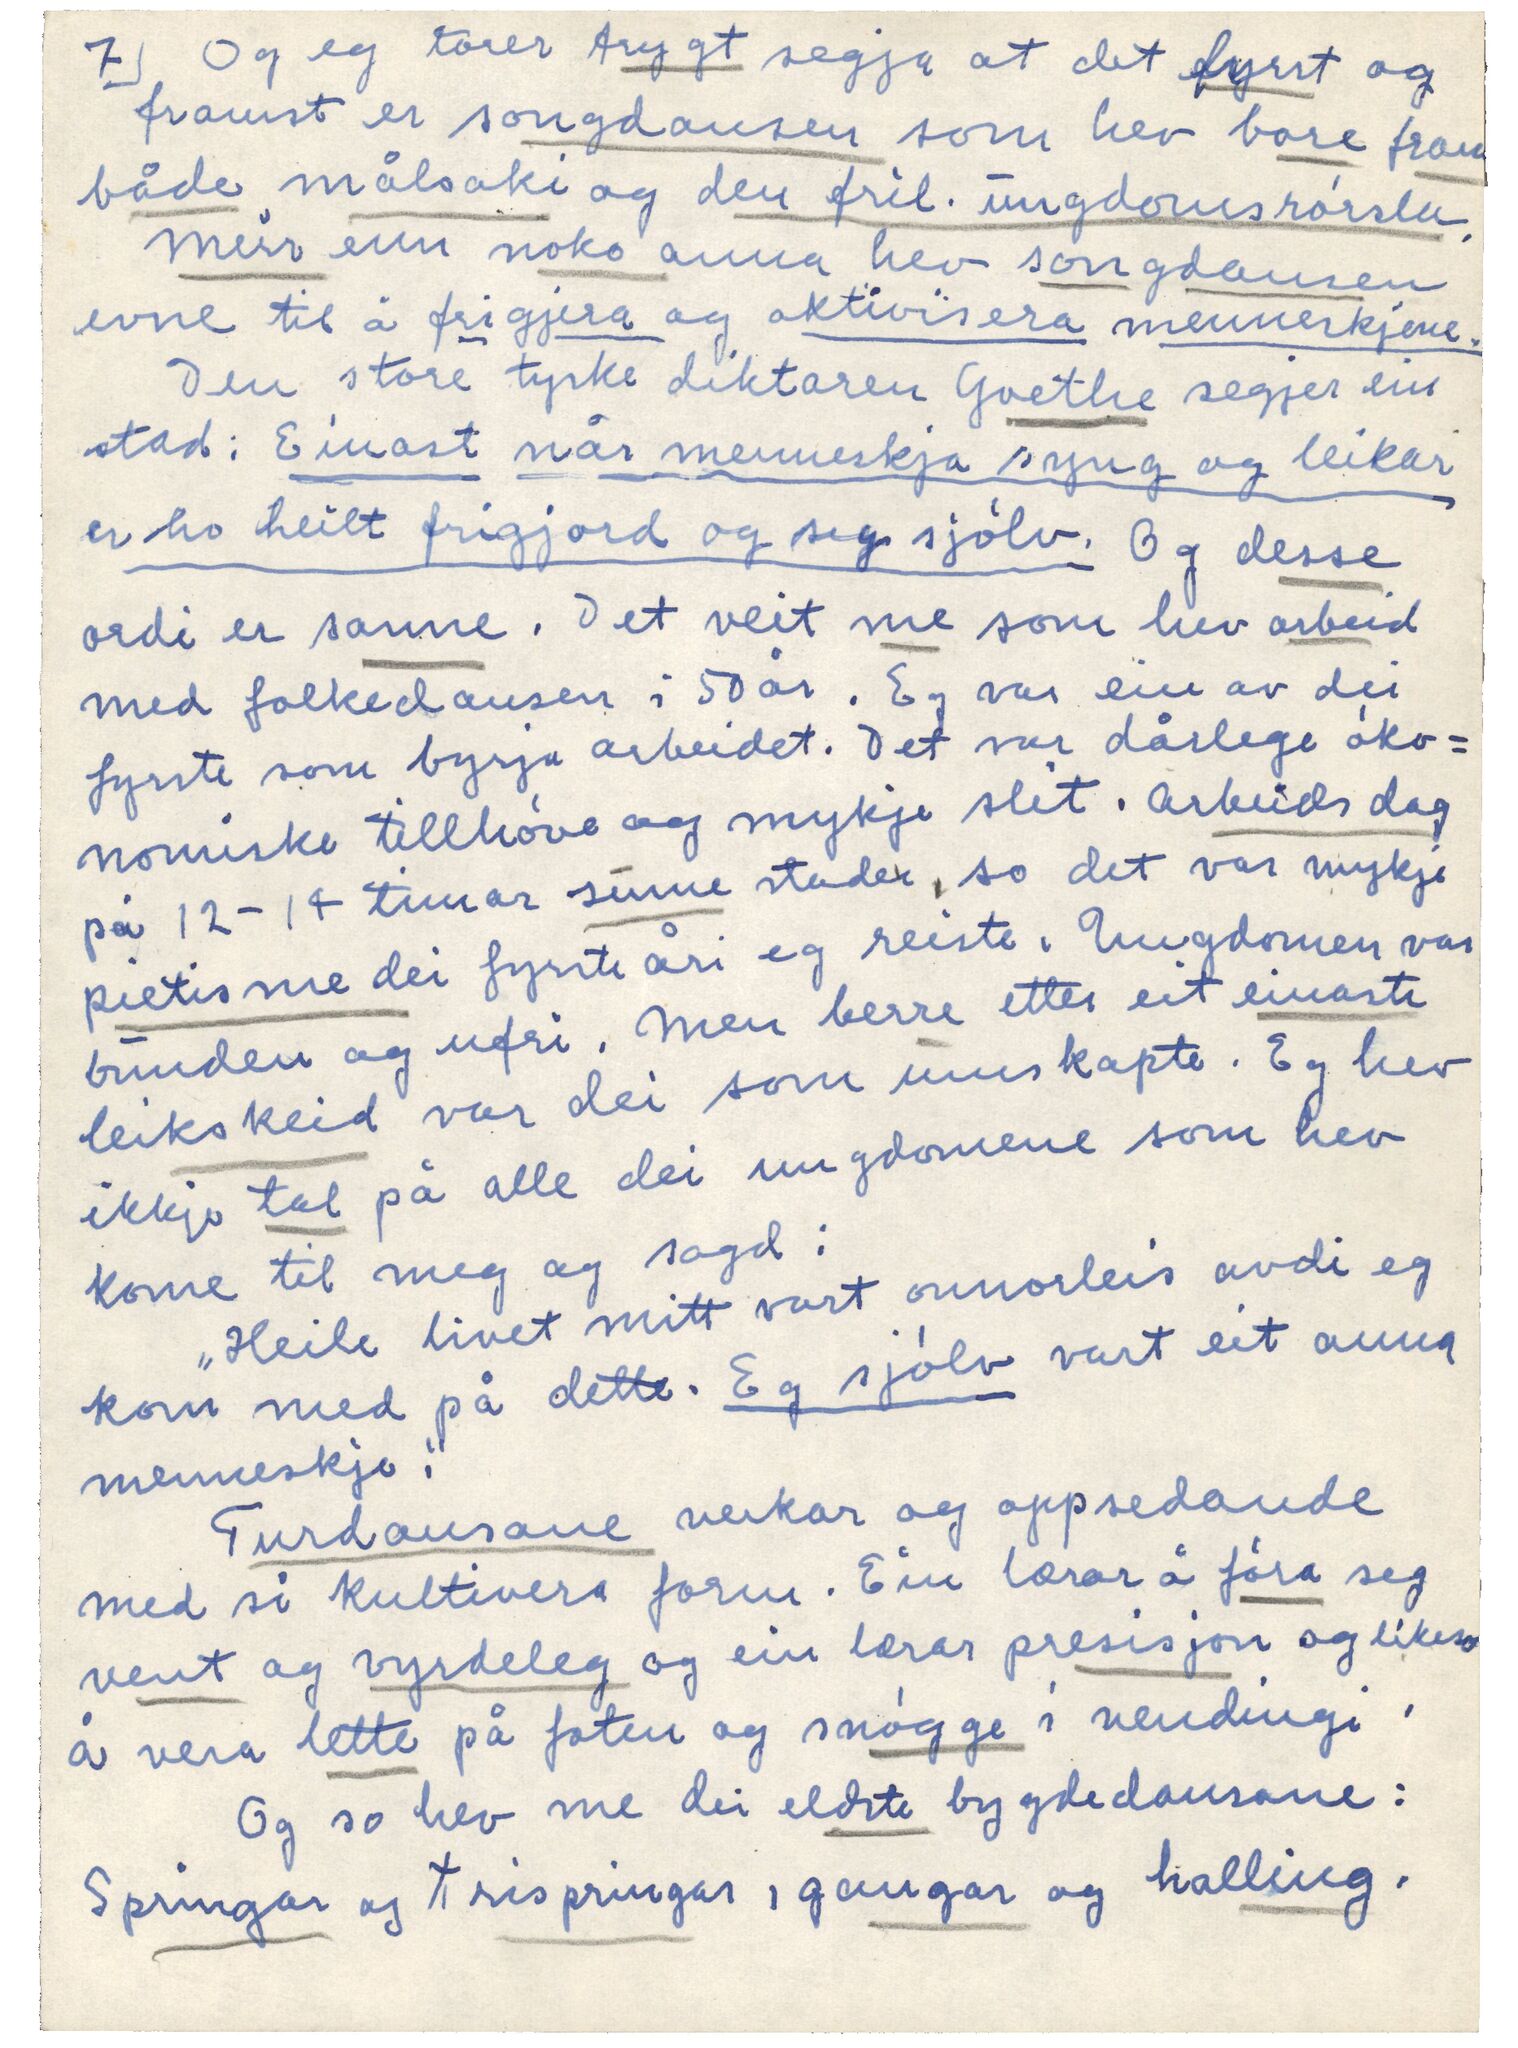 7) Og eg torer trygt segja at det fyrst og
framst er songdansen som hev bore fram
både målsaki og den fril. ungdomsrórsla.
Meir enn noko anna hev songdansen
evne til å frigjera og aktivisera menneskjene.
Den store tyske diktaren Goethe segjer ein
stad: Einast når menneskja syng og leikar
er ho heilt frigjord og seg sjólv. Og desse
ordi er sanne. Det veit me som hev arbeid
med folkedansen i 50 år. Eg var ein av dei
fyrste som byrja arbeidet. Det var dårlege óko=
nomiske tillhóve og mykje slit. Arbeidsdag
på 12-14 timar sume stader, so det var mykje
pietisme dei fyrste åri eg reiste. Ungdomen var
bunden og ufri. Men berre etter eit einaste
leikskeid var dei som umskapte. Eg hev
ikkje tal på alle dei ungdomene som hev
kome til meg og sagd:
„Heile livet mitt vart onnorleis avdi eg
kom med på dette. Eg sjólv vart eit anna
menneskje."
Turdansane verkar og oppsedande
med si kultivera form. Ein lærar å fóra seg
vent og vyrdeleg og ein lærar presisjon og likeso
å vera lette på foten og snógge i vendingi.
Og so hev me dei eldste bygdedansane:
Springar og Trispringar, gangar og halling.